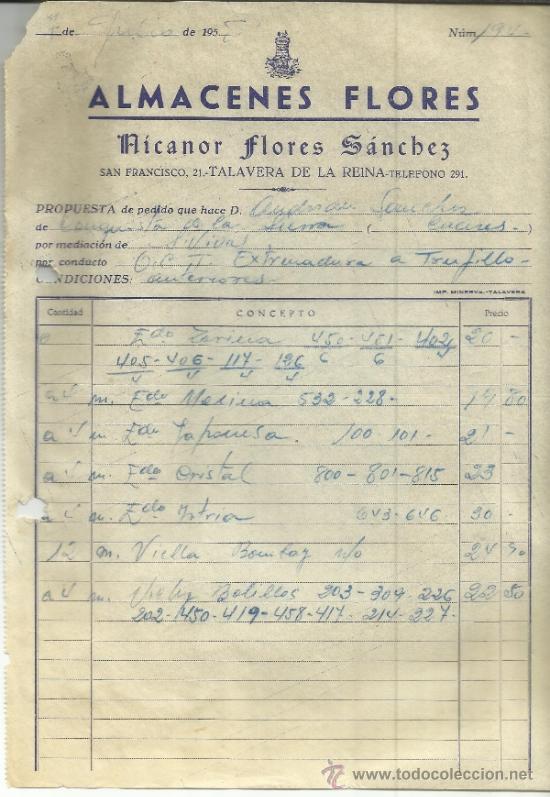 de Junio de 195 Núm. 194
ALMACENES FLORES
Nicanor Flores Sánchez
SAN FRANCISCO, 21.-TALAVERA DE LA REINA-TELEFONO 291.
PROPUESTA de pedido que hace D. Sanchez
de Conquista de la Sierra ( Cáceres )
por mediación de S. Vivas
por conducto O.C.T. Extremadura a Trujillo
CONDICIONES: anteriores
IMP. MINERVA.-TALAVERA
Cantidad CONCEPTO Precio
Edo 450-451-402 20 -
405-406-117-126 6 6
4 4 4 4
a 4 m. Edo 532-228- 14 80
a 4 m Edo Japonesa. 100-101- 21 -
a 4 m. Edo Cristal 800-801-815 23
m. Edo 643-646 30 -
12 m. Viella Bombay 24 50
a 4 m. Vichy Bolillos 203-304-226 22 50
202-1450-419-458-417-214-227-
www.todocoleccion.net